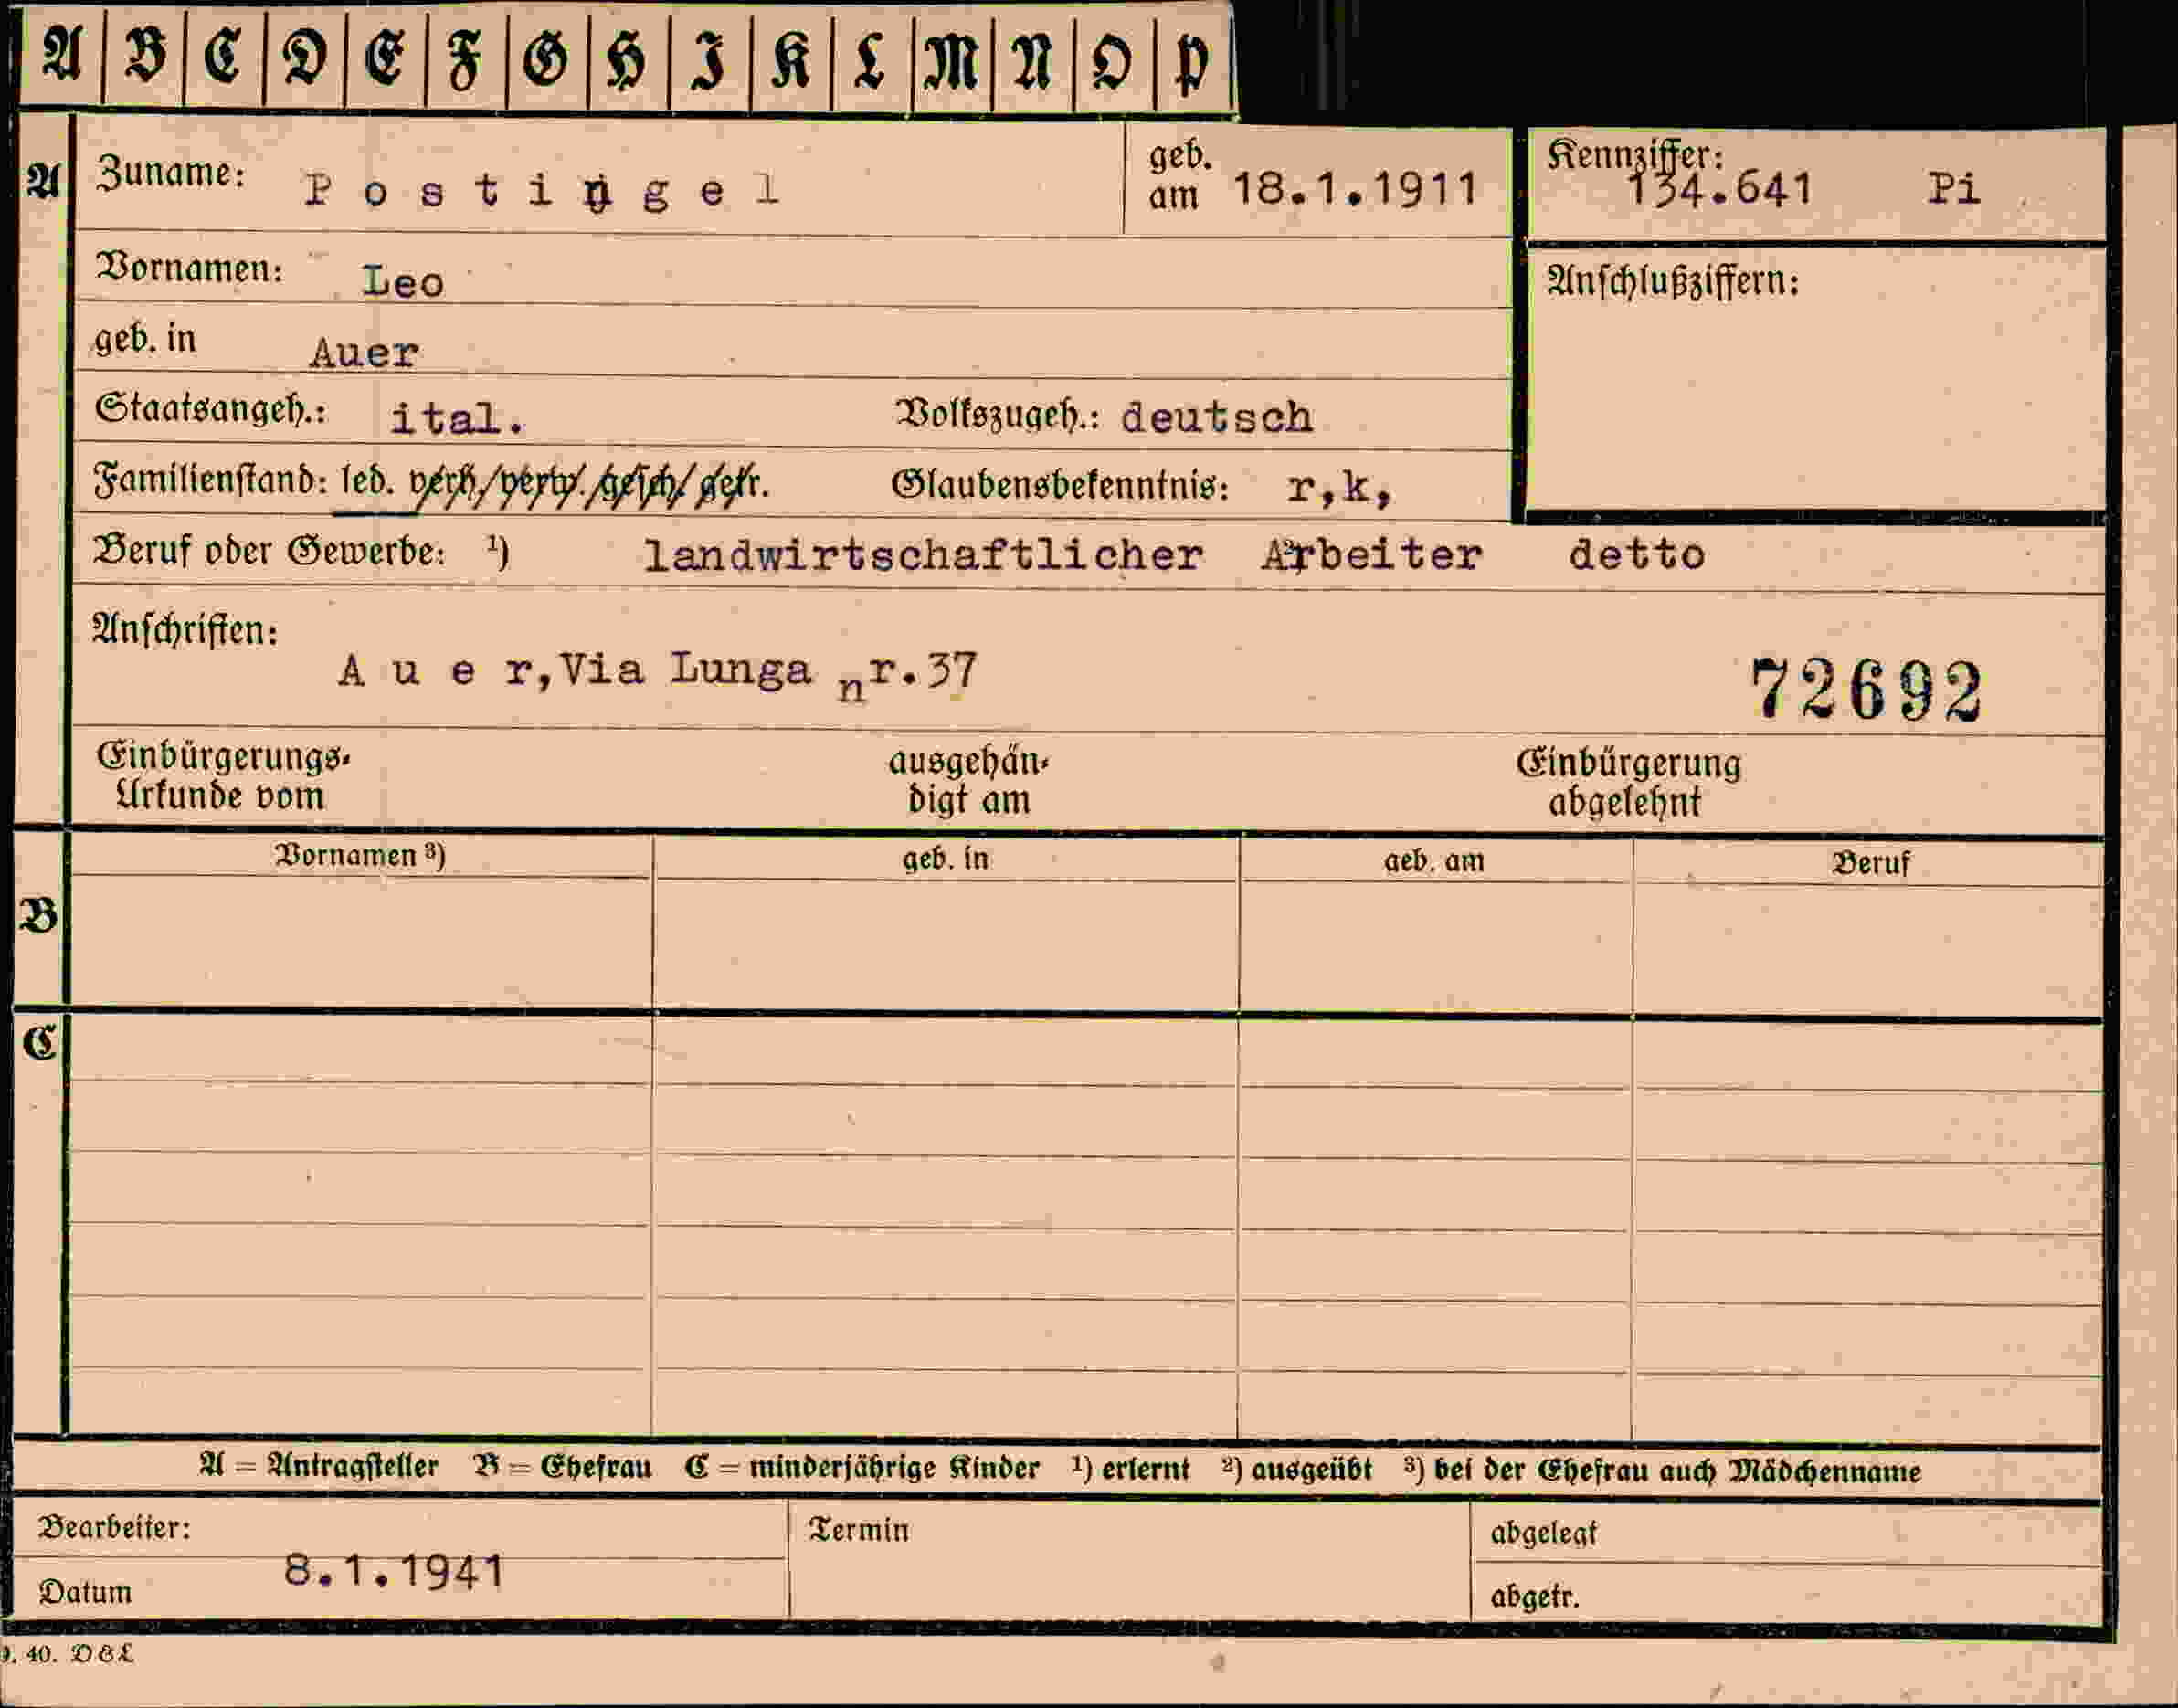 A B C D E F G H I K L M N O P
A Zuname: Postingel geb. am 18.1.1911 Kennziffer: 134.641 Pi
Vornamen: Leo Anschlußziffern:
geb. in Auer
Staatsangeh.: ital. Volkszugeh.: deutsch
Familienstand: led. verh./verw./gesch./getr. Glaubensbekenntnis: r,k,
Beruf oder Gewerbe: ¹) landwirtschaftlicher Arbeiter detto
Anschriften:
A u e r, Via Lunga nr.37 72692
Einbürgerungs- ausgehän- Einbürgerung
Urkunde vom digt am abgelehnt
Vornamen ³) geb. in geb. am Beruf
B
C
A = Antragsteller B = Ehefrau C = minderjährige Kinder ¹) erlernt ²) ausgeübt ³) bei der Ehefrau auch Mädchenname
Bearbeiter: Termin abgelegt
8.1.1941
Datum abgetr.
40. D&L